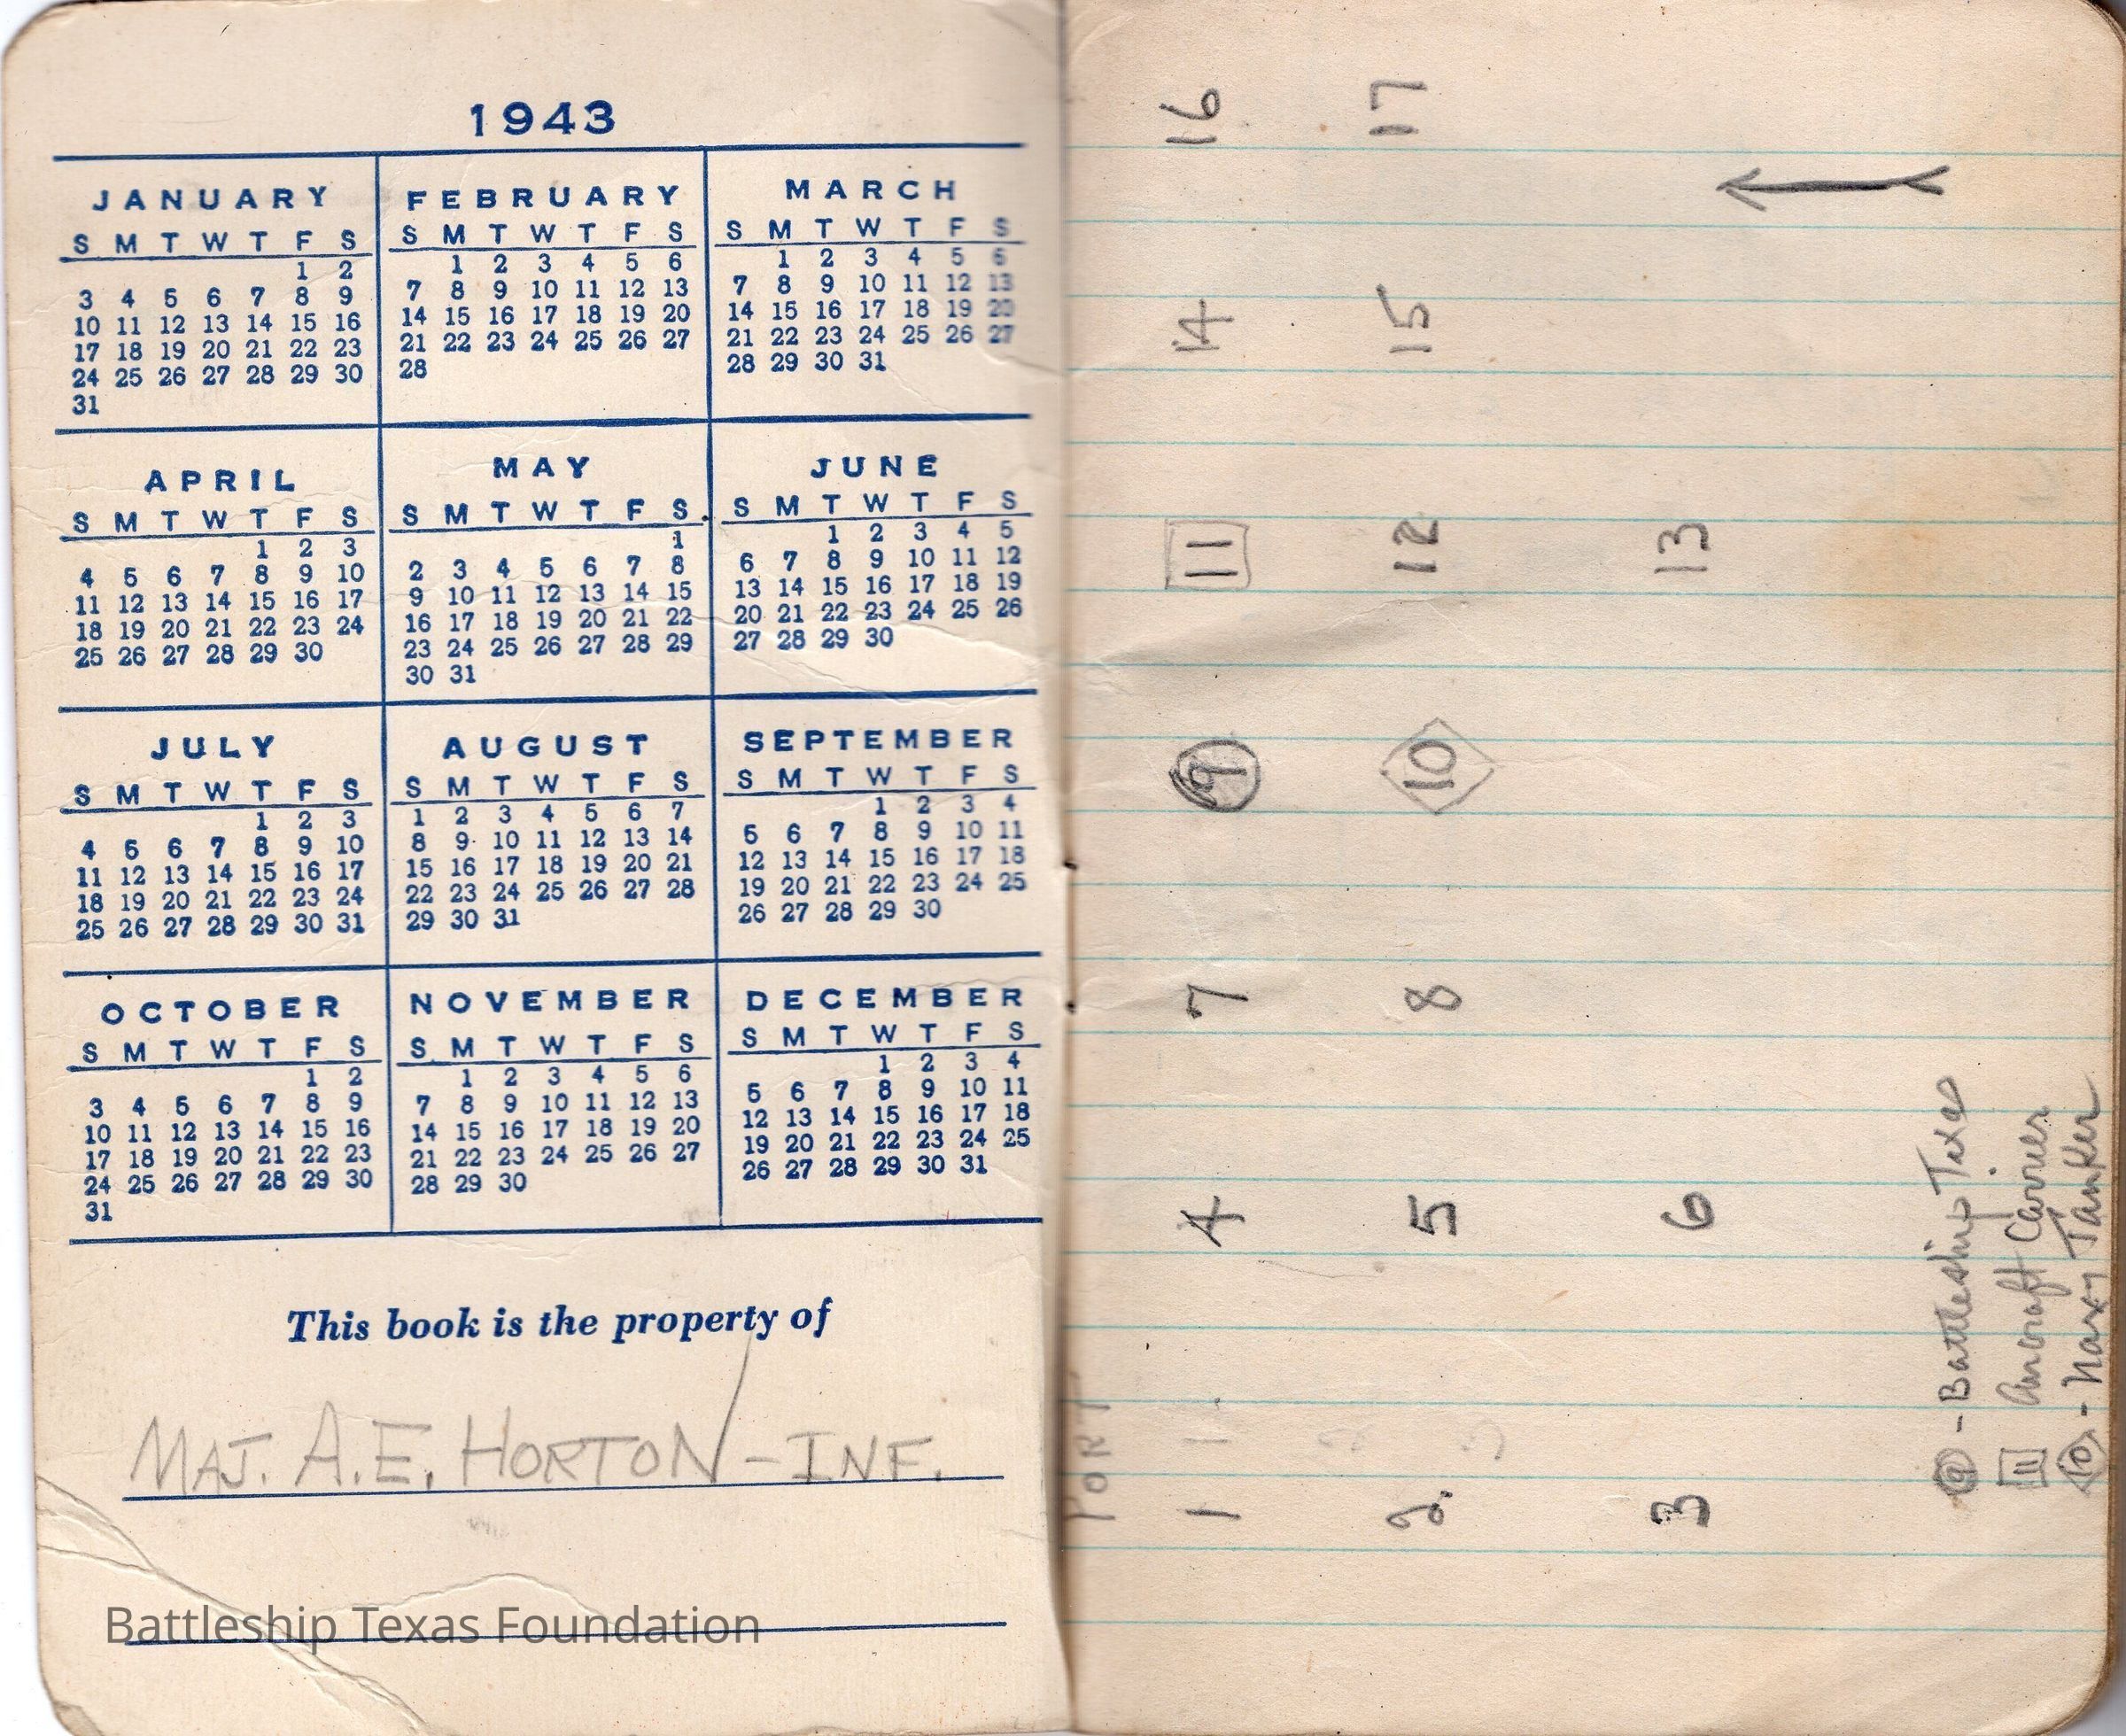 1943
JANUARY
S M T W T F S
1 2
3 4 5 6 7 8 9
10 11 12 13 14 15 16
17 18 19 20 21 22 23
24 25 26 27 28 29 30
31
FEBRUARY
S M T W T F S
1 2 3 4 5 6
7 8 9 10 11 12 13
14 15 16 17 18 19 20
21 22 23 24 25 26 27
28
MARCH
S M T W T F S
1 2 3 4 5 6
7 8 9 10 11 12 13
14 15 16 17 18 19 20
21 22 23 24 25 26 27
28 29 30 31
APRIL
S M T W T F S
1 2 3
4 5 6 7 8 9 10
11 12 13 14 15 16 17
18 19 20 21 22 23 24
25 26 27 28 29 30
MAY
S M T W T F S
1
2 3 4 5 6 7 8
9 10 11 12 13 14 15
16 17 18 19 20 21 22
23 24 25 26 27 28 29
30 31
JUNE
S M T W T F S
1 2 3 4 5
6 7 8 9 10 11 12
13 14 15 16 17 18 19
20 21 22 23 24 25 26
27 28 29 30
JULY
S M T W T F S
1 2 3
4 5 6 7 8 9 10
11 12 13 14 15 16 17
18 19 20 21 22 23 24
25 26 27 28 29 30 31
AUGUST
S M T W T F S
1 2 3 4 5 6 7
8 9 10 11 12 13 14
15 16 17 18 19 20 21
22 23 24 25 26 27 28
29 30 31
SEPTEMBER
S M T W T F S
1 2 3 4
5 6 7 8 9 10 11
12 13 14 15 16 17 18
19 20 21 22 23 24 25
26 27 28 29 30
OCTOBER
S M T W T F S
1 2
3 4 5 6 7 8 9
10 11 12 13 14 15 16
17 18 19 20 21 22 23
24 25 26 27 28 29 30
31
NOVEMBER
S M T W T F S
1 2 3 4 5 6
7 8 9 10 11 12 13
14 15 16 17 18 19 20
21 22 23 24 25 26 27
28 29 30
DECEMBER
S M T W T F S
1 2 3 4
5 6 7 8 9 10 11
12 13 14 15 16 17 18
19 20 21 22 23 24 25
26 27 28 29 30 31
This book is the property of
MAJ. A.E. HORTON - INF.
Battleship Texas Foundation
PORT
1 4 7 9 11 14 16
2 5 8 10 12 15 17
3 6 13
9 - Battleship Texas
11 Aircraft Carrier
10 - Navy Tanker